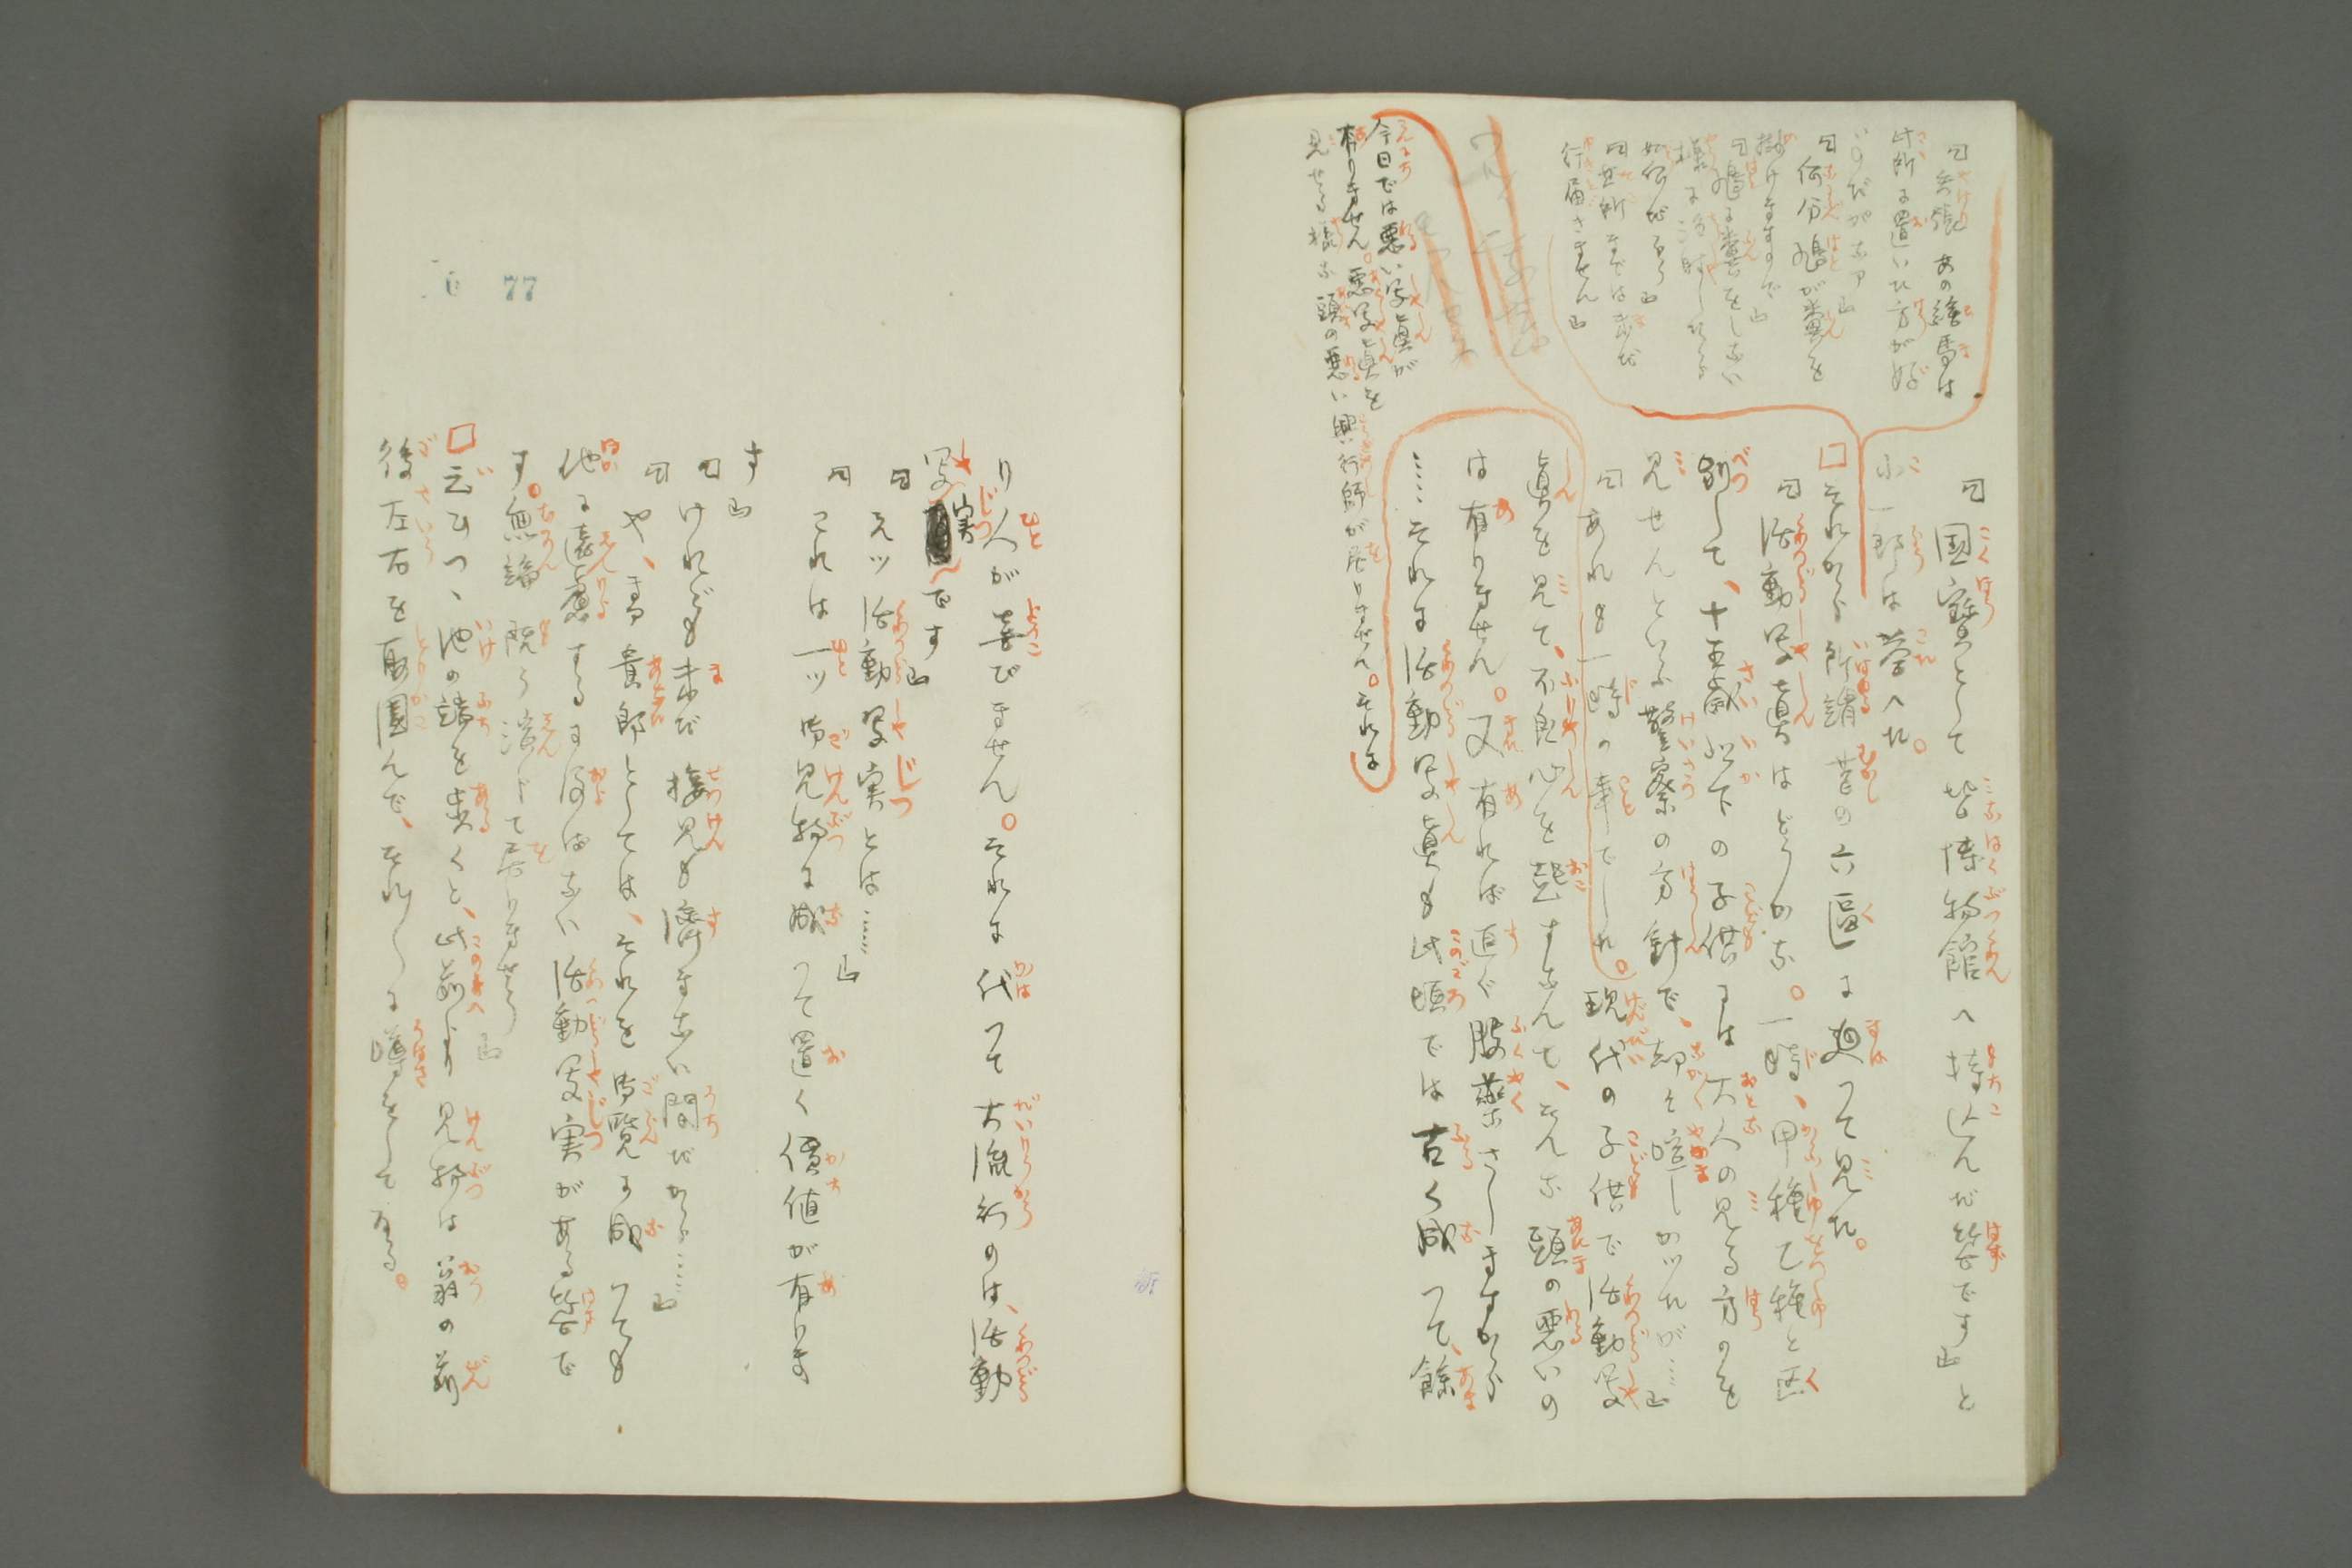 『国宝として皆博物館へ持込んだ筈です』と
小一郎は答へた。
『矢張あの繪馬は
此所に置いた方が好
いのだがなア』
『何分鳩が糞を
掛けますので』
『鳩に糞をしない
様に
如何だらう』
『其所までは未だ
行届きません』
□それから所謂昔の六區に廻つて見た。
『活動写真はどうかな。一時、甲種乙種と区
別して、十五歳以下の子供には大人の見る方のを
見せんといふ警察の方針で、却々喧しかつたが……』
『あれも一時の事でした。現代の子供で活動写
真を見て、不良心を起すなんて、そんな頭の悪いの
は有りません。又有れば直ぐ服薬さしますから
……それに活動写真も此頃では古く成つて、餘
今日では悪い写真が
有りません。悪写真を
見せる様な頭の悪い興行師が居りません。それに
り人が喜びません。それに代つて大流行のは、活動
写実です』
『えツ活動写実とは……』
『これは一ツ御見物に成つて置く價値が有りま
す』
『けれども未だ接見も濟まない間だから……』
『や、責郎としては、それを御覧に成つても
他に遠慮するに及ばない活動写実がある筈で
す。無論既う演じて居りませう』
□云ひつゝ池の諸を歩くと、此前より見物は翁の前
後左右を取園んで、それ〳〵に噂をしてゐる。
77